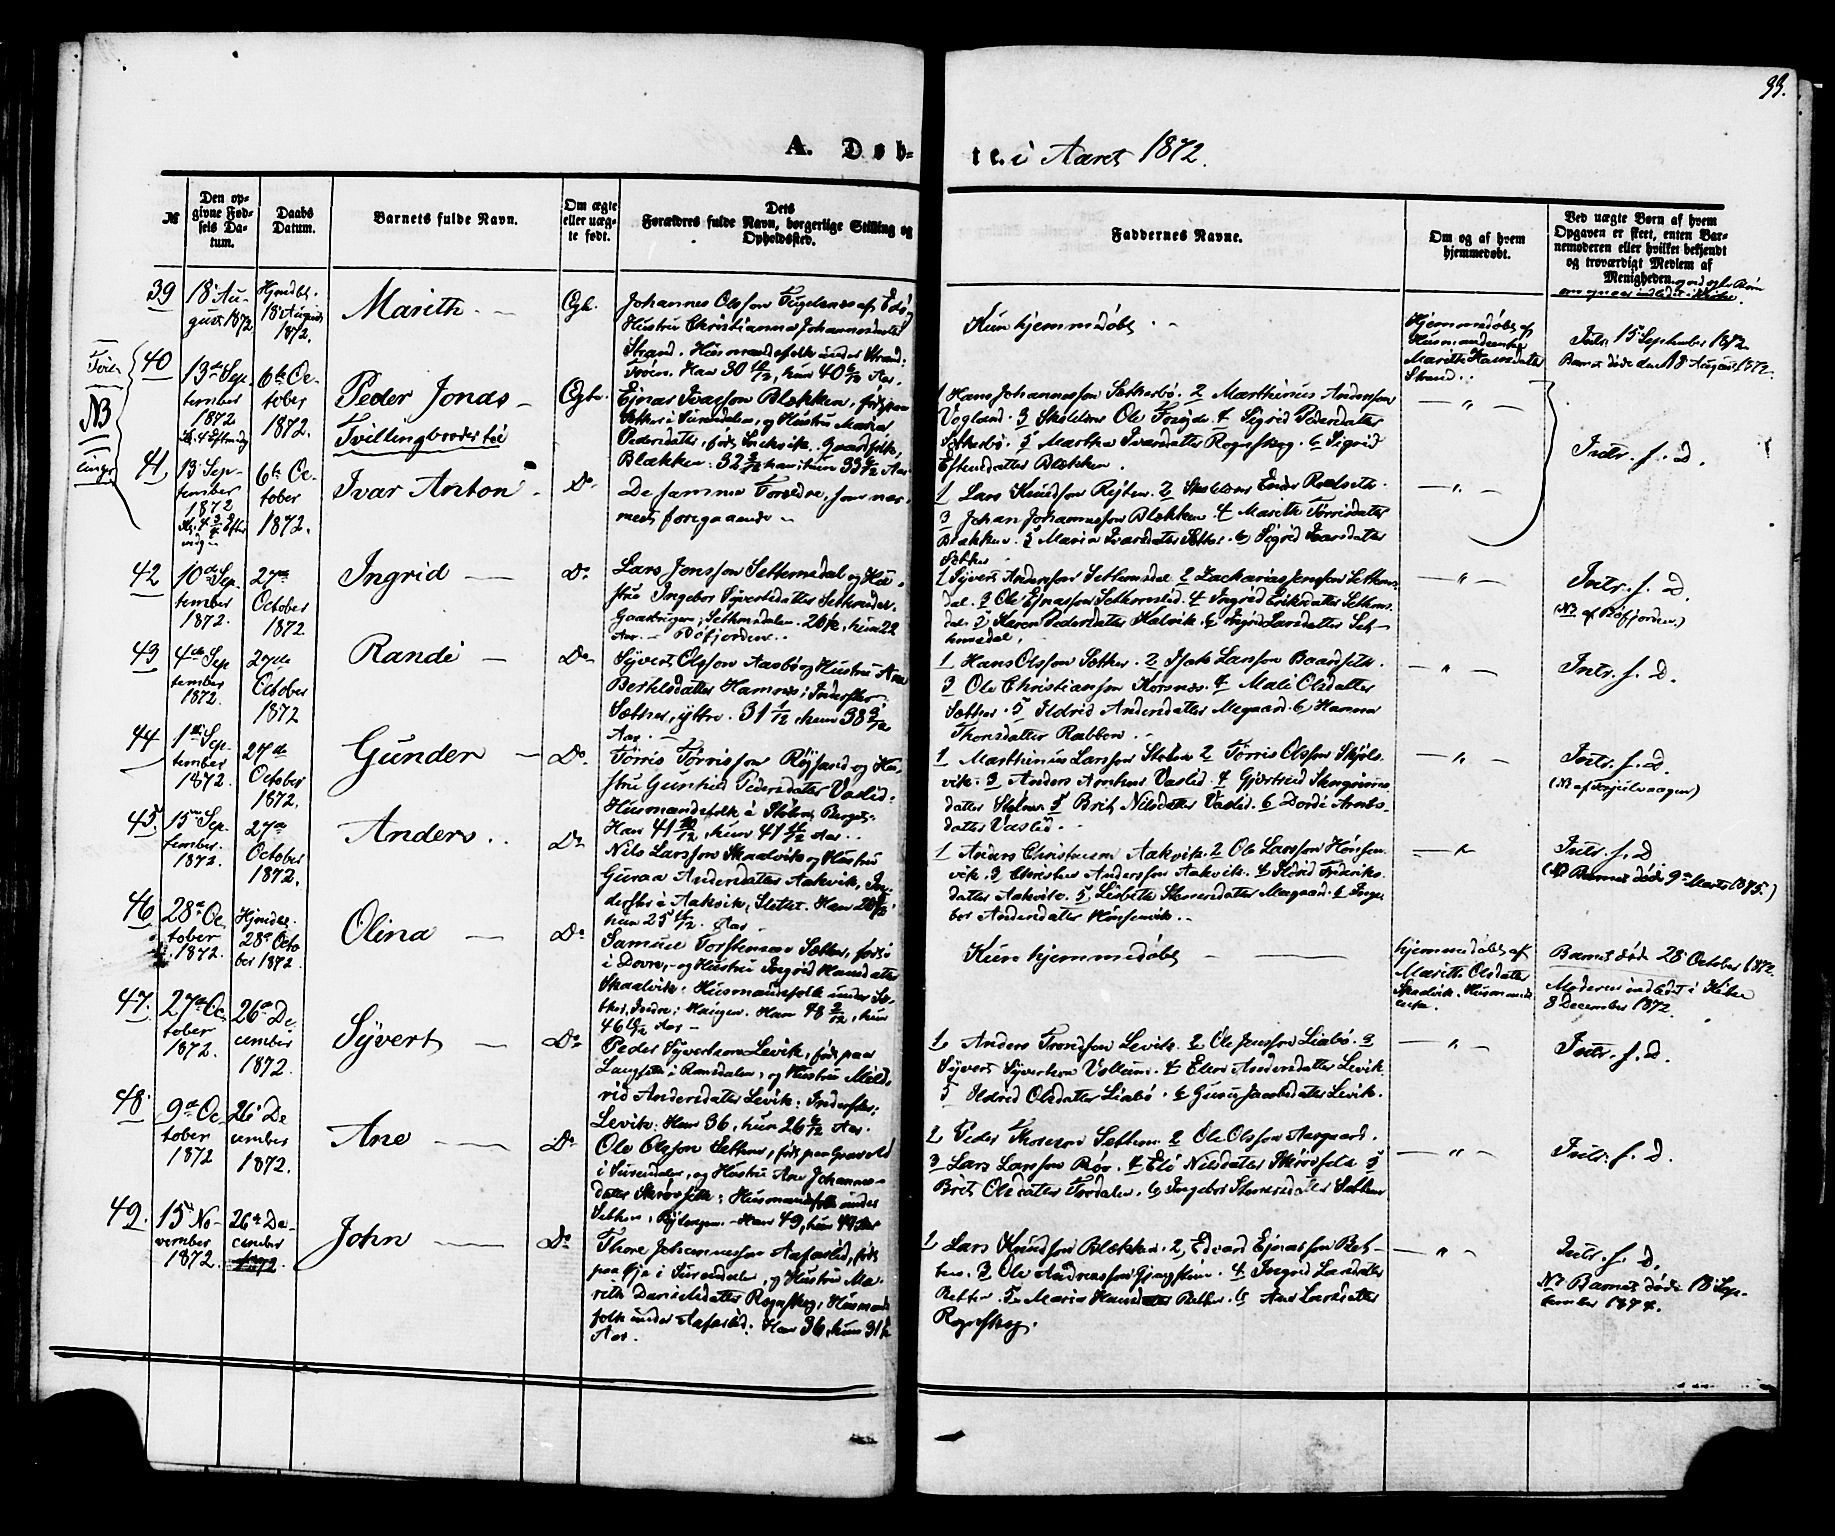 33.
A. Døb-
te. i Aaret 1872.
№
Den op-
givne Fød-
sels Da-
tum.
Daabs
Datum.
Barnets fulde Navn.
Om ægte
eller uæg-
te født.
Dets
Forældres fulde Navn, borgerlige Stilling og
Opholdssted.
Faddernes Navne.
Om og af hvem
hjemmedøbt.
Ved uægte Børn af hvem
Opgaven er skeet, enten Bar-
nemoderen eller hvilket bekjendt
og troværdigt Medlem af
Menigheden.
39
18 Au-
gust 1872
Hjmdbt.
18 August
1872.
Marith
Ægte.
Johannes Olsson
Hustru Christianna Johannesdatter
Strand. Husmandsfolk under Strand:
Han 30 hun 40 Aar.
Kun hjemmedøbt
Hjemmedøbt af
Marith Hansdatter
Strand.
Intr. 15 September 1872.
Barnet døde den 18 August 1872.
Tvil-
NB
linger
40
13de Sep-
tember
1872
6te Oc-
tober
1872.
Peder Jonas
Tvillingbroder til
Ægte.
Ejnar Ivarsson Blækken, født paa
Sæther i Surendalen, og Hustru Maria
Pedersdatter, født Gaardfolk,
Blækken: 32 han; hun 33 Aar.
1 Hans Johannesson Sætherbø. 2 Marthinus Andersson
Vogland. 3 Ole 4 Sigrid Pedersdatter
Sætherbø. 5 Martha Ivarsdatter Rognskog. 6 Sigrid
Blækken.
— " —
Intr. f. D.
41
13 Sep-
tember
1872
6te Oc-
tober
1872.
Ivar Anton
Do
De samme Forældre, som nær-
mest foregaaende
1 Lars Knudsson 2
3 Johan Johannesson Blækken. 4 Marith Tørrisdatter
Blækken. 5 Maria Ivarsdatter Sæther. 6 Sigrid Ivarsdatter
Sæther
— " —
42
10de Sep-
tember
1872.
27de
October
1872.
Ingrid
Do
Lars Jonsson Settemsdal og Hu-
stru Ingebor Syvertsdatter
hun 22
Aar. — Bøfjorden.
1 Syvert Andersson Settemsdal 2 Zacharias Jensson Settems-
dal. 3 Ole Ejnarsson 4 Ingrid Eriksdatter Settems-
dal. 5 Karen Pedersdatter Halvik. 6 Ingrid Larsdatter Set-
temsdal.
— " —
Intr. f. D.
(NB af Bøfjorden.)
43
4de Sep
tember
1872.
27de
October
1872
Randi
Do
Syvert Olsson Aasbø og Hustru Ane
Bertelsdatter Hamnes; Inderster,
Sæther, yttre. 31 1/12, hun 38 9/12
Aar.
1 Hans Olsson Sæther. 2 Isak Larsson Baardseth.
3 Ole Christiansson Korsnæs. 4 Mali Olsdatter
Sæther. 5 Ildrid Andersdatter Megaard. 6 Hanna
Thoresdatter Rabben.
— " —
Intr. f. D.
44
1ste Sep-
tember
1872.
27de
October
1872.
Gunder
Do
Tørris Tørrisson Røjsand og Hu-
stru Gunhild Pedersdatter Vaslid.
Husmandsfolk
Han 41 10/12, hun 41 Aar.
1 Marthinus Larsson 2 Tørris Olsson Skjøls-
vik. 3 Anders Arntsen Vaslid. 4 Gjertrud
datter 5 Brit Nilsdatter Vaslid. 6 Dordi Arnts-
datter Vaslid.
— " —
Intr. f. D.
45
15de Sep-
tember.
1872.
27de
October
1872.
Anders
Do
Nils Larsson Skaalvik og Hustru
Guraa Andersdatter Aakvik, In-
derster i Aakvik, Slettet. Han 28
hun 25 Aar
1 Anders Christensen Aakvik. 2 Ole Larsson Hønsen-
vik. 3 Christen Andersson Aakvik. 4 Ildrid Frederiks-
datter Aakvik. 5 Lisbeth Stenersdatter Megaard. 6 Inge-
bor Andersdatter Hønsenvik.
— " —
Intr. f. D
(NB Barnet døde 9de Marts 1875.)
46
28de Oc-
tober
1872.
Hjmdbt.
28de Octo
ber 1872
Olina
Do
Samuel Torstensen Sæther, født
i Dovre, og Hustru Ingrid Hansdatter
Skaalvik: Husmandsfolk under Sæ-
ther, Indre; Haugen. Han 48 2/12, hun
46 Aar
Kun hjemmedøbt
hjemmedøbt af
Marith Olsdatter
Skaalvik. Husmands
enke.
Barnet døde 28 October 1872.
Moderen indledet i Kirken
8 December 1872.
47.
27de Oc-
tober
1872.
26de De-
cember
1872.
Syvert
Do
Peder Syvertsen Levik, født paa
Langseth i Romsdalen, og Hustru Mild-
rid Andersdatter Levik: Inderster;
Levik: Han 36, hun 26 Aar.
1 Anders Trondson Levik. 2 Ole Jensson Liabø. 3
Syvert Syvertsen Vollum. 4 Ellen Andersdatter Levik
5 Ildrid Olsdatter Liabø. 6 Guru Jacobsdatter Levik.
— " —
Intr. f. D.
48.
9de Oc-
tober
1872
26de De
cember
1872.
Ane
Do
Ole Olsson Settem, født paa
i Surendalen, og Hustru Ane Johannes-
datter Skrøvseth: Husmandsfolk under
Settem, Han 49, hun 49 Aar
1 Peder Settem. 2 Ole Olsson Aasgaard.
3 Lars Larsson Bøv. 4 Eli Nilsdatter Skrøvseth 5
Brit Olsdatter Tordalen. 6 Ingebor Stenersdatter Settem
— " —
Intr. f. D.
49.
15de No-
vember
1872.
26de De-
cember
1872.
John
Do
Thore Johannesson Aafarslid, født
paa Øje i Surendalen, og Hustru Ma-
rith Danielsdatter Rognskog, Husmands-
folk under Aafarslid: Han 36, hun 31
Aar.
1 Lars Knudsson Blækken. 2, Edvard Ejnarsson Bet-
ten. 3 Ole Andreasson 4 Ingrid Larsdatter
Betten. 5 Maria Hansdatter Betten. 6 Ane Larsdatter
Rognskog.
— " —
Intr. f. D.
NB Barnet døde 18 Sep-
tember 1874.